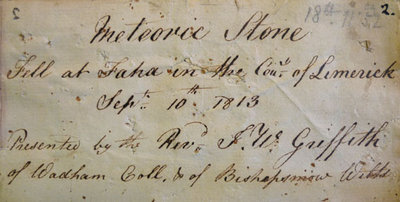 2.
Meteoric Stone
Fell at Faha in the Couy. of Limerick
Sepr. 10th 1813
Presented by the Revd. J. Griffith
of Wadham Coll. & of Bishopsmow Wilts